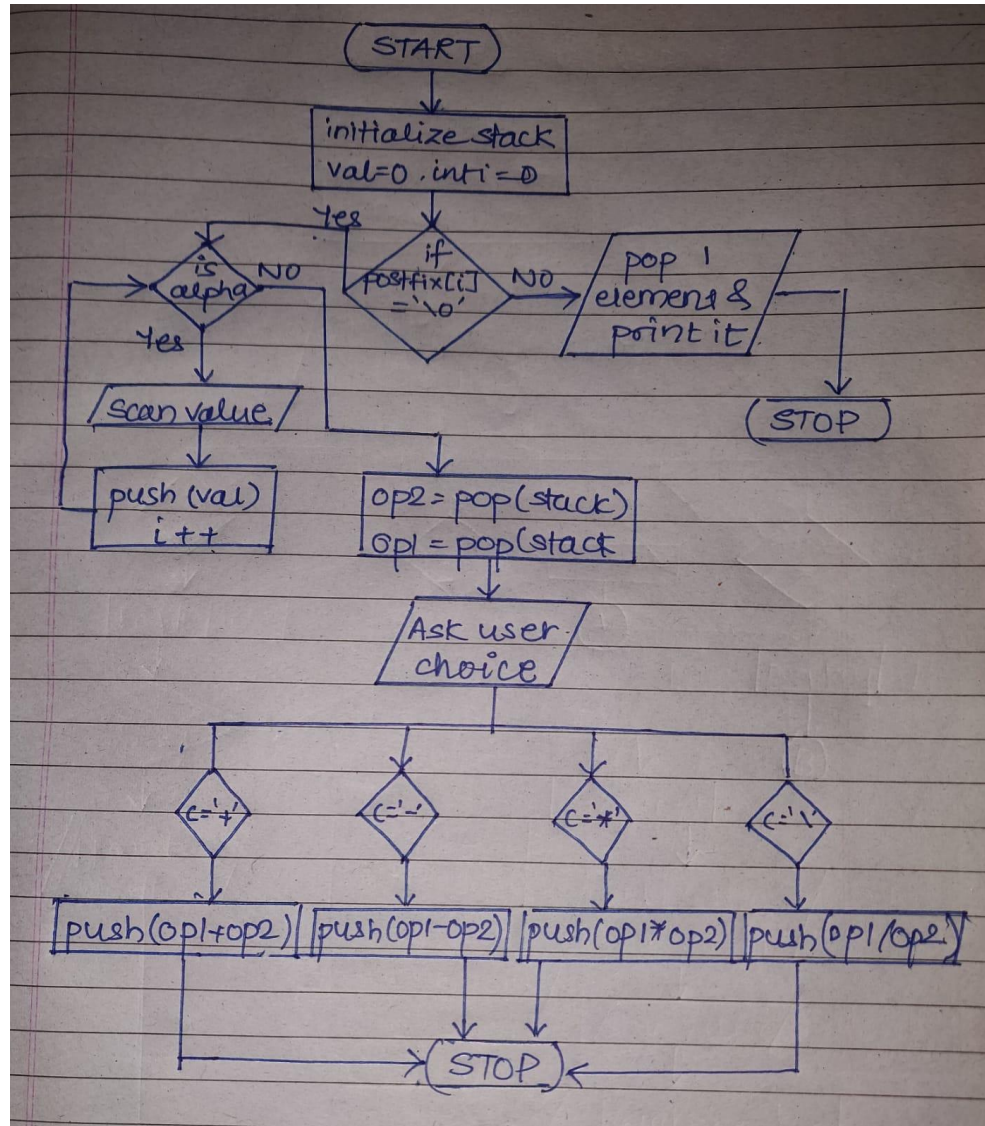 START
initialize stack
val=0, int i=0
Yes
if
postfix[i]
='\0'
NO
pop 1
element &
print it
STOP
is
alpha
NO
Yes
scan value
push (val)
i++
op2 = pop(stack)
op1 = pop(stack
Ask user
choice
c='+'
c='-'
c='*'
c='\'
push(op1+op2)
push(op1-op2)
push(op1*op2)
push(op1/op2)
STOP